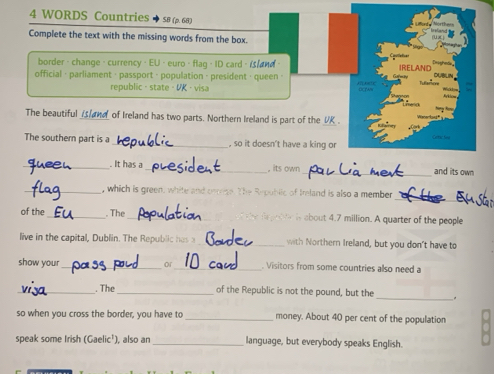 4 WORDS Countries → SB (p. 68)
Complete the text with the missing words from the box.
border · change · currency · EU · euro · flag · ID card · island ·
official · parliament · passport · population · president · queen ·
republic · state · UK · visa
The beautiful island of Ireland has two parts. Northern Ireland is part of the UK.
The southern part is a republic, so it doesn't have a king or
queen. It has a president, its own parliament and its own
flag, which is green, white and orange. The Republic of Ireland is also a member of the EU state
of the EU. The Population is about 4.7 million. A quarter of the people
live in the capital, Dublin. The Republic has a Border with Northern Ireland, but you don't have to
show your pass pord or ID card. Visitors from some countries also need a
visa. The of the Republic is not the pound, but the ,
so when you cross the border, you have to money. About 40 per cent of the population
speak some Irish (Gaelic¹), also an language, but everybody speaks English.
Northern
Ireland
(U.K.)
IRELAND
DUBLIN
Galway
Shannon
Limerick
Waterford
Killarney
Cork